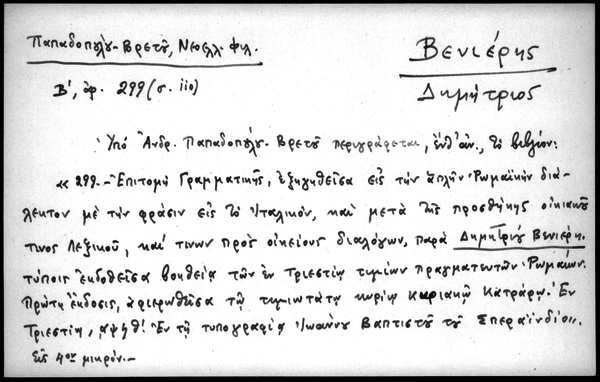 Παπαδοπούλου-Βρετοῦ, Νεοελλ. φιλ.
Β', ἀρ. 299 (σ. 110)
Βενιέρης
Δημήτριος
Ὑπό Ἀνδρ. Παπαδοπούλου-Βρετοῦ περιγράφεται, ἐνθ' ἀν., τό βιβλίον:
« 299.- Ἐπιτομή Γραμματικῆς, ἐξηγηθεῖσα εἰς τήν ἁπλῆν Ῥωμαϊκήν διά-
λεκτον μέ τήν φράσιν εἰς τό Ἰταλικόν, καί μετά τῆς προσθήκης οἰκιακοῦ
τινος Λεξικοῦ, καί τινων πρός οἰκείους διαλόγων, παρά Δημητρίου Βενιέρη.
τύποις ἐκδοθεῖσα βοηθείᾳ τῶν ἐν Τριεστίῳ τιμίων πραγματευτῶν Ῥωμαίων.
Πρώτη ἔκδοσις, ἀφιερωθεῖσα τῷ τιμιωτάτῳ κυρίῳ Κυριακῷ Κατράρῳ. Ἐν
Τριεστίῳ, ͵αψϟθ! Ἐν τῇ τυπογραφίᾳ Ἰωάννου Βαπτιστοῦ τοῦ Σπεραϊνδίου.
Εἰς 4ον μικρόν.-